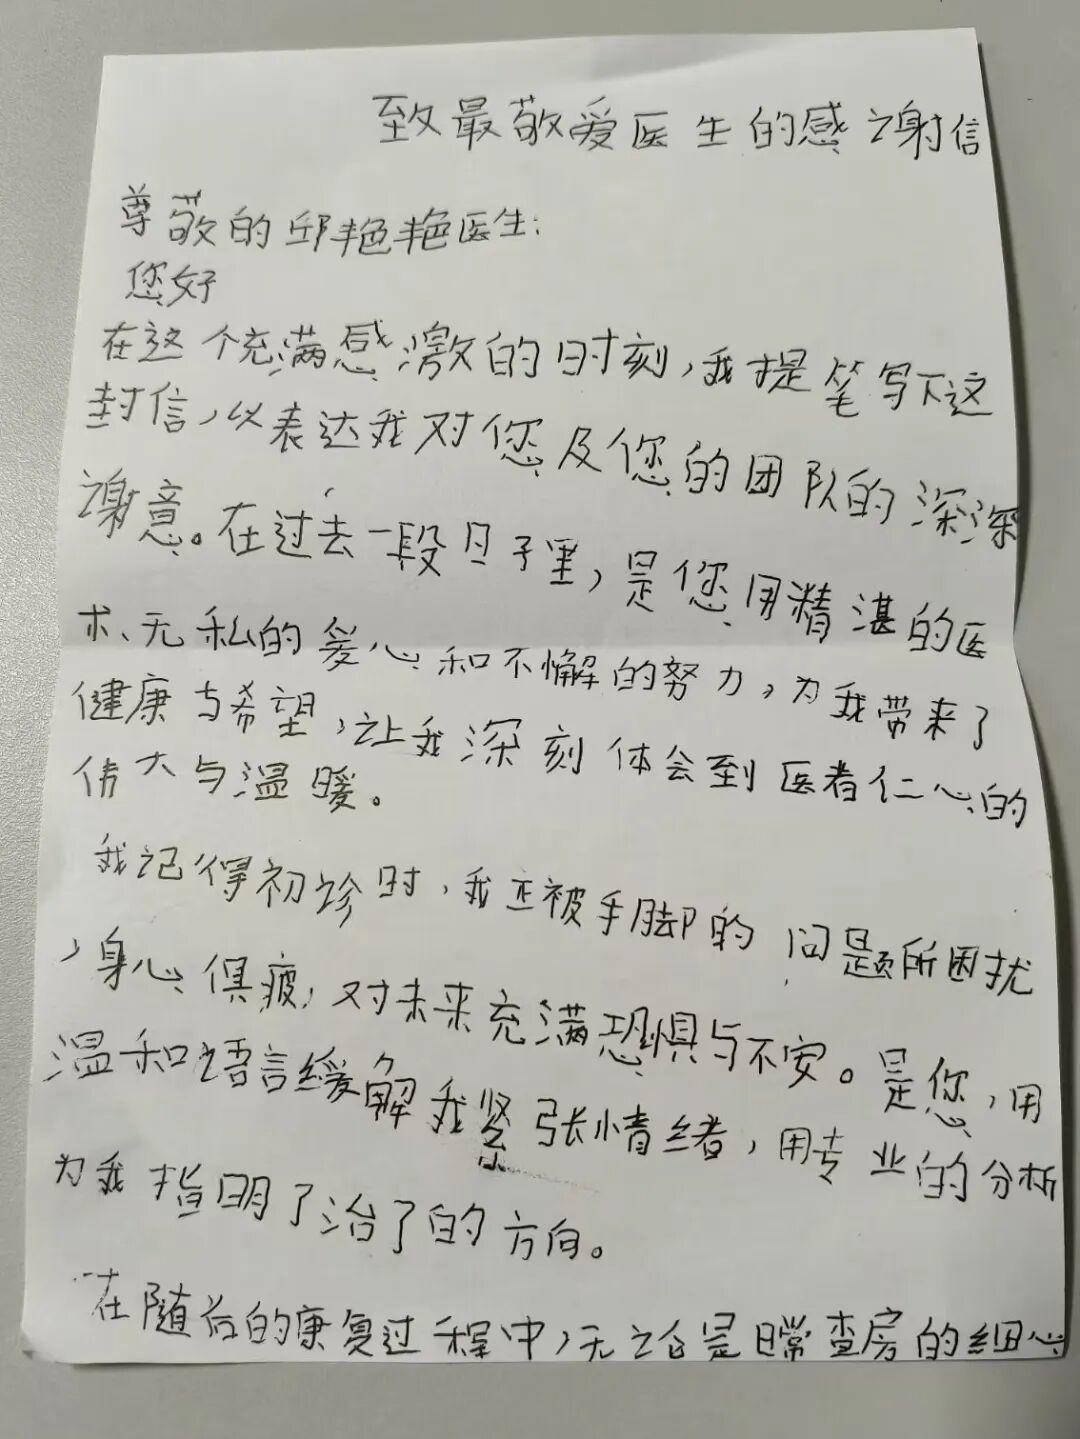 致最敬爱医生的感谢信
尊敬的邱艳艳医生:
您好
在这个充满感激的时刻,我提笔写下这
封信,以表达我对您及您的团队的深深
谢意。在过去一段日子里,是您用精湛的医
术、无私的爱心和不懈的努力,为我带来了
健康与希望,让我深刻体会到医者仁心的
伟大与温暖。
我记得初诊时,我正被手脚的问题所困扰
,身心俱疲,对未来充满恐惧与不安。是您,用
温和语言缓解我紧张情绪,用专业的分析
为我指明了治了的方向。
在随后的康复过程中,无论是日常查房的细心